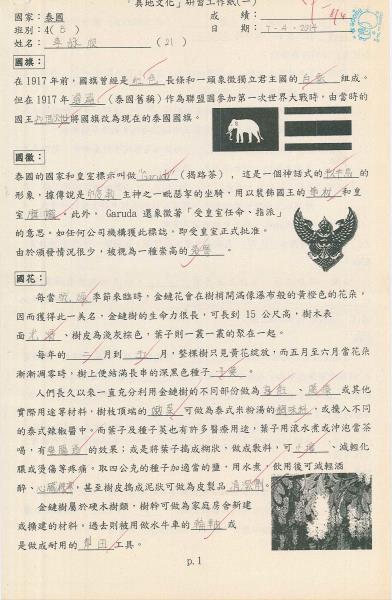 「異地文化」研習工作紙(一)
國家：泰國
成績：
班別：4(B)
日期：7-4-2014
姓名：
(21)
國旗：
在1917年前，國旗曾經是紅色長條和一頭象徵獨立君主國的白象組成。
但在1917年暹羅（泰國舊稱）作為聯盟國參加第一次世界大戰時，由當時的
國王 將國旗改為現在的泰國國旗。
國徽：
泰國的國家和皇室標示叫做Garuda（揭路荼），這是一個神話式的 的
形象，據傳說是印度教主神之一毗瑟挐的坐騎，用以裝飾國王的 和皇
室旗幟。此外，Garuda還象徵著「受皇室任命、指派」
的意思。如任何公司機構獲此標誌，即受皇室正式批准。
由於頒發情況很少，被視為一種崇高的榮譽。
國花：
每當 季節來臨時，金鏈花會在樹梢間滿像瀑布般的黃橙色的花朵，
因而獲得此一美名，金鏈樹的生命力很長，可長到15公尺高，樹木表
面光滑、樹皮為淺灰棕色，葉子則一叢一叢的聚在一起。
每年的二月到五月，整棵樹只見黃花綻放，而五月至六月當花朵
漸漸凋零時，樹上便結滿長串的深黑色種子 。
人們長久以來一直充分利用金鏈樹的不同部份做為 、 或其他
實際用途等材料，樹枝頂端的 可做為泰式米粉湯的調味料，或攙入不同
的泰式辣椒醬中。而葉子及種子莢也有許多醫療用途，葉子用滾水煮或沖泡當茶
喝，有 的效果；或是將葉子搗成糊狀，做成敷料，可 、減輕化
膿或燙傷等疼痛。取四公克的種子加適當的鹽，用水煮，飲用後可減輕酒
醉、心臟疾病，甚至樹皮搗成泥狀可做為皮製品清潔劑。
金鏈樹屬於硬木樹類，樹幹可做為家庭房舍新建
或擴建的材料，過去則被用做水牛車的輪軸或
是做成耐用的犁田工具。
p.1